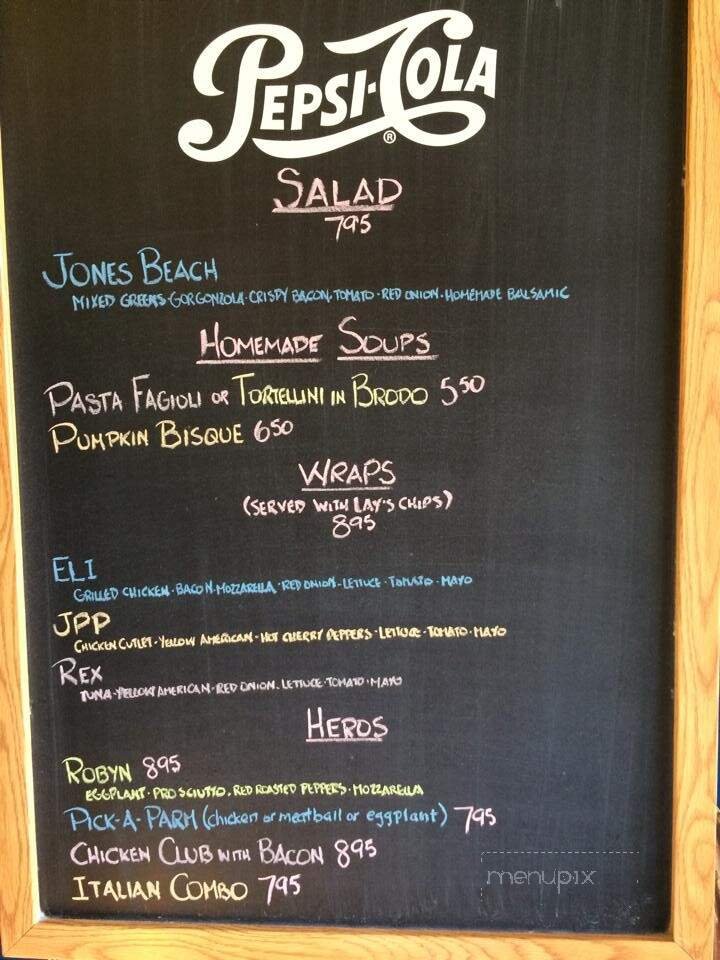 PEPSI-COLA®
SALAD
795
JONES BEACH
MIXED GREENS·GORGONZOLA·CRISPY BACON·TOMATO·RED ONION·HOMEMADE BALSAMIC
HOMEMADE SOUPS
PASTA FAGIOLI OR TORTELLINI IN BRODO 550
PUMPKIN BISQUE 650
WRAPS
(SERVED WITH LAY'S CHIPS)
895
ELI
GRILLED CHICKEN·BACON·MOZZARELLA·RED ONION·LETTUCE·TOMATO·MAYO
JPP
CHICKEN CUTLET·YELLOW AMERICAN·HOT CHERRY PEPPERS·LETTUCE·TOMATO·MAYO
REX
TUNA·YELLOW AMERICAN·RED ONION·LETTUCE·TOMATO·MAYO
HEROS
ROBYN 895
EGGPLANT·PROSCIUTTO·RED ROASTED PEPPERS·MOZZARELLA
PICK-A-PARM (chicken or meatball or eggplant) 795
CHICKEN CLUB WITH BACON 895
ITALIAN COMBO 795
menupix